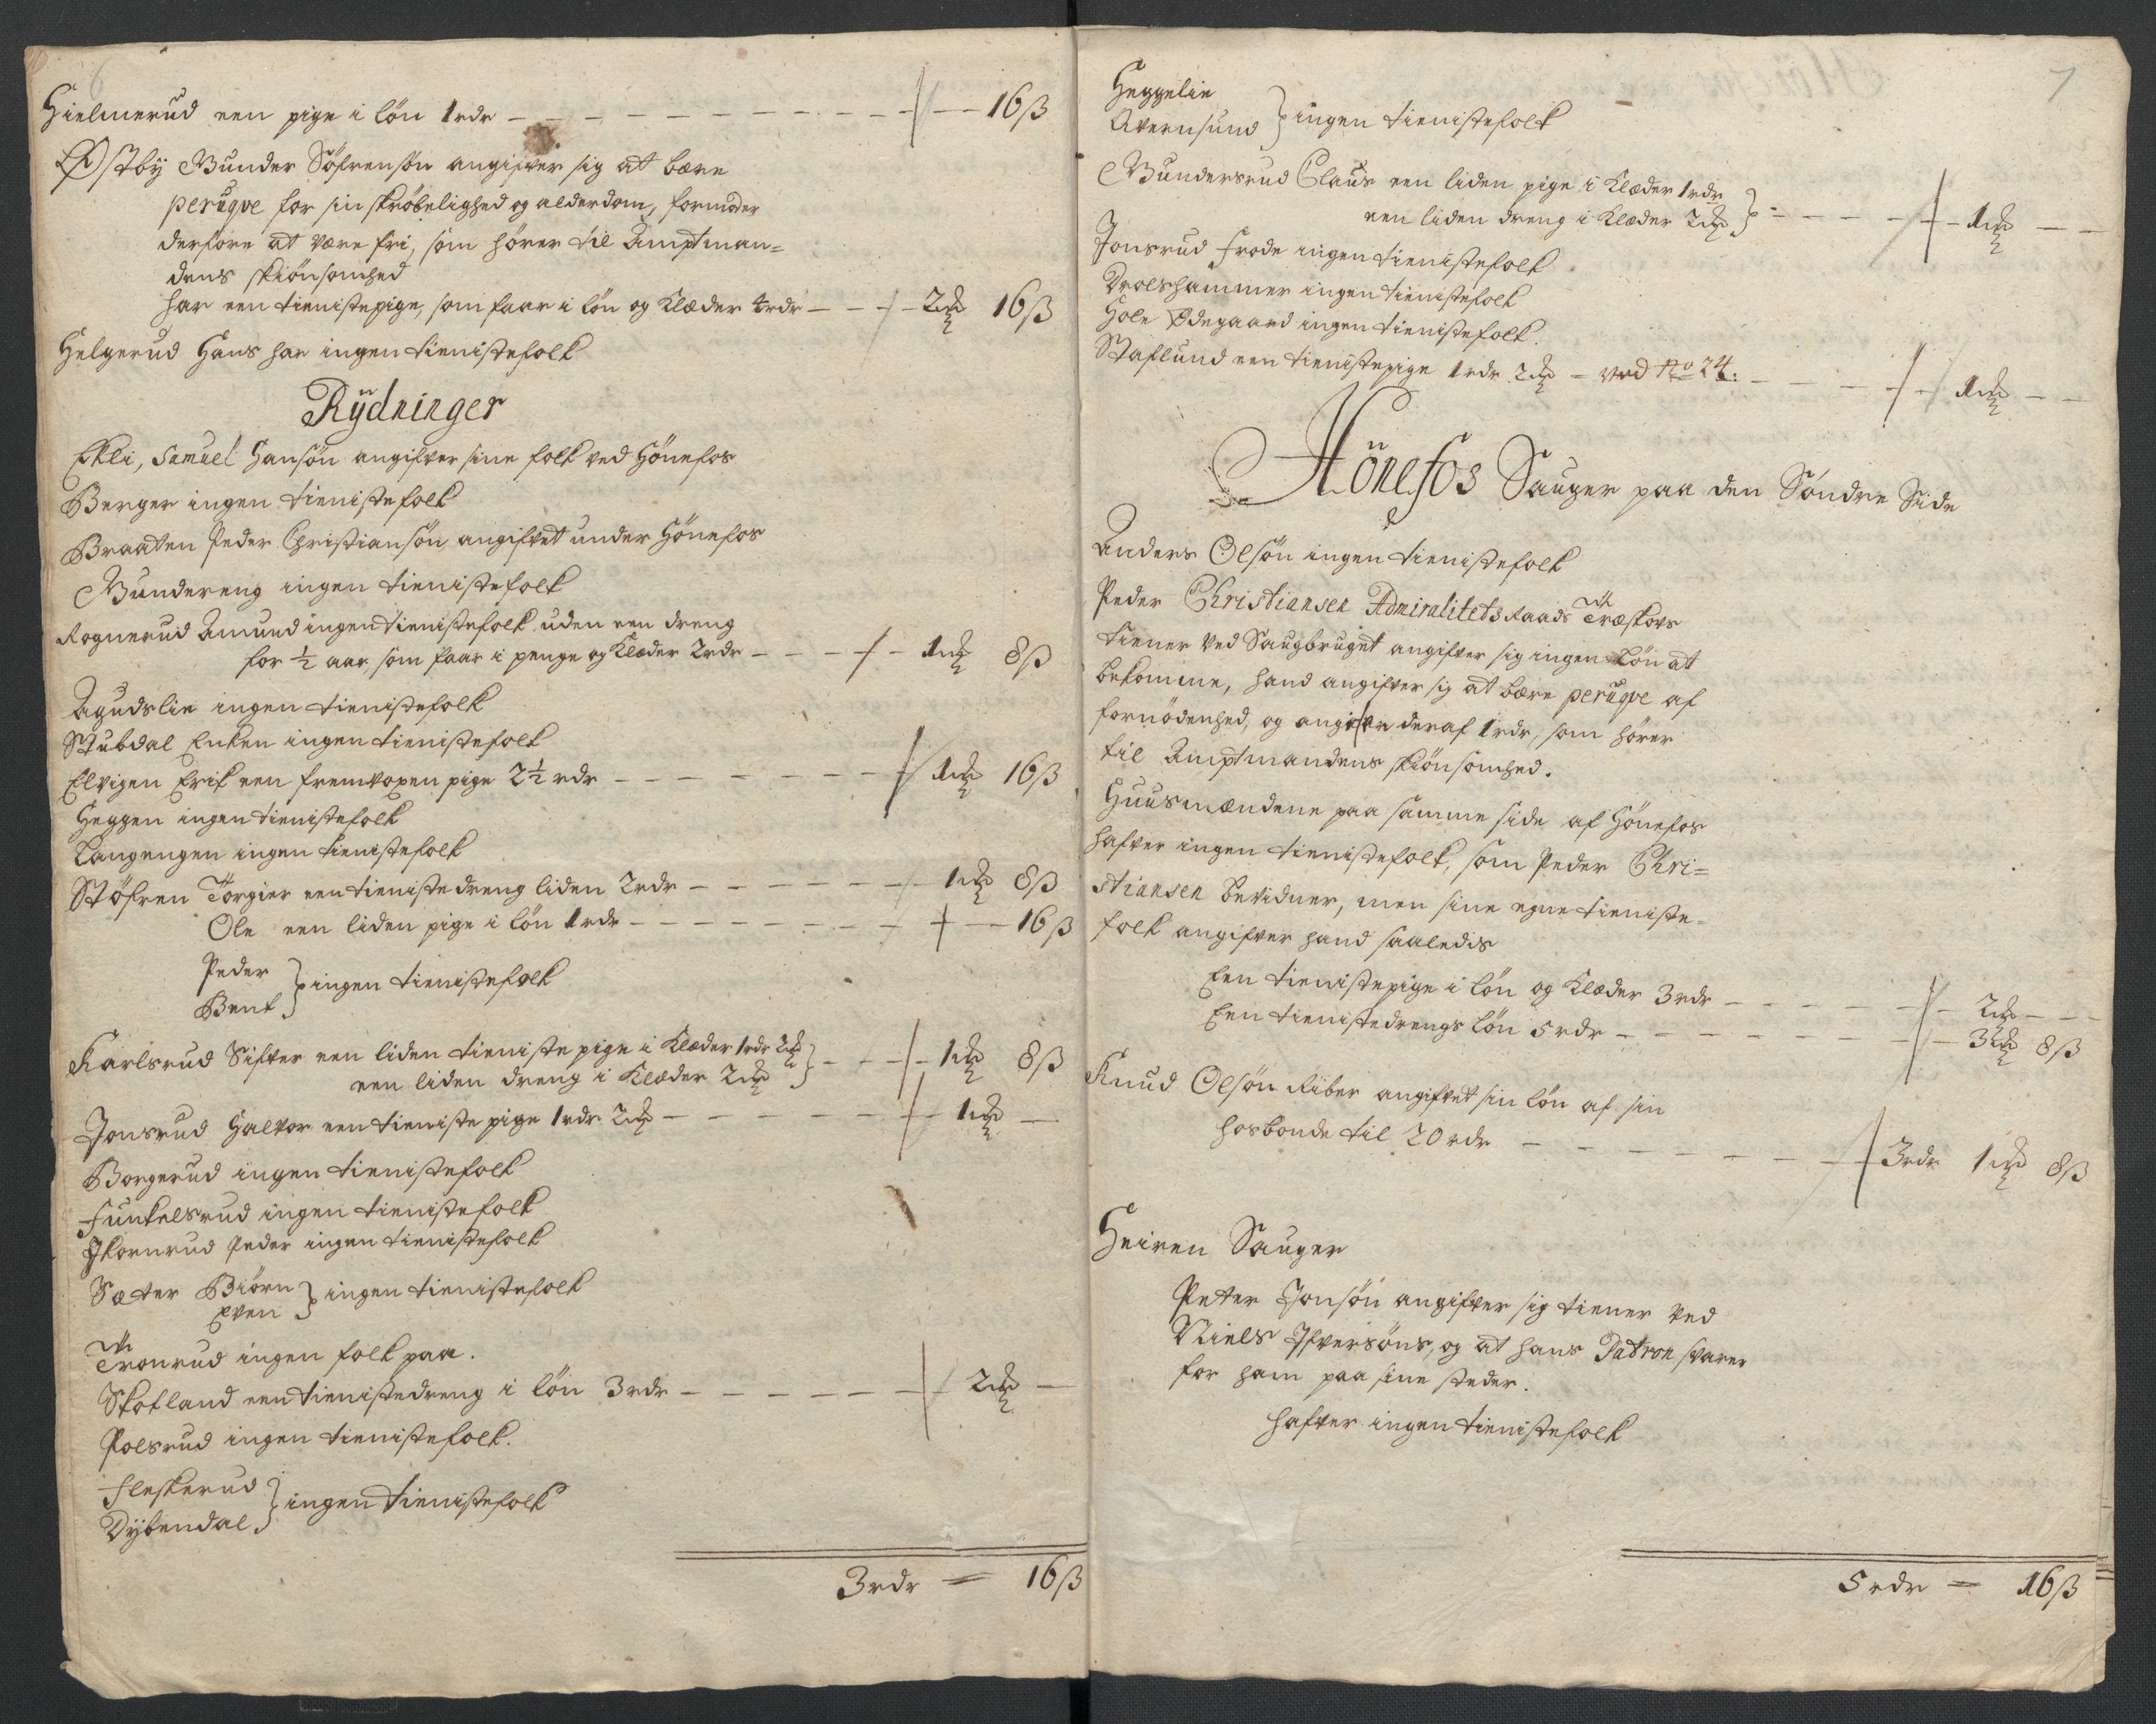 Hielmerud een pige i løn 1 rdr – – – – 16 ß
Østby Gunder Söfrensön angifver sig at bære
perüqve for sin skröbelighed og alderdom, formoder
derfore at være fri, som hörer til Amptman=
dens skiönsomhed
har een tienistepige, som faar i lön og Klæder 4 rdr – – 2 ort 16 ß
Helgerud Hans har ingen tienistefolk
Rÿdninger
Ekli, Samuel Hansön angifver sine folk ved Hönefos
Berger ingen tienistefolk
Braaten Peder Christiansön angifvet under Hönefos
Gundereng ingen tienistefolk
Rognerud Amund ingen tienistefolk uden een dreng
for ½ aar, som faar i penge og Klæder 2 rdr – – – 1 ort 8 ß
Agudslie ingen tienistefolk
Stubdal Enken ingen tienistefolk
Elvigen Erik een fremvoxen pige 2½ rdr – – – 1 ort 16 ß
Heggen ingen tienistefolk
Langengen ingen tienistefolk
Stöfren Torgier een tienistedreng liden 2 rdr – – – 1 ort 8 ß
Ole een liden pige i lön 1 rdr – – – 16 ß
Peder
Bent } ingen tienistefolk
Karlsrud Sifver een liden tieniste pige i Klæder 1 rdr 2 ort
een liden dreng i Klæder 2 ort } – – – 1 ort 8 ß
Jonsrud Halvor een tieniste pige 1 rdr 2 ort – – – 1 ort –
Borgerud ingen tienistefolk
Funkelsrud ingen tienistefolk
Ikornrud Peder ingen tienistefolk
Sæter Biörn
Even } ingen tienistefolk
Tronrud ingen folk paa.
Skotland een tienistedreng i lön 3 rdr – – – 2 ort –
Polsrud ingen tienistefolk.
Fleskerud
Dÿbendal } ingen tienistefolk
3 rdr = 16 ß
7
Heggelie
Avernsund } ingen tienistefolk
Gundersrud Claus een liden pige i Klæder 1 rdr
een liden dreng i Klæder 2 ort } – – – 1 ort – –
Jonsrud Frode ingen tienistefolk
Drolshammer ingen tienistefolk
Hole Ødegaard ingen tienistefolk.
Staflund een tienistepige 1 rdr 2 ort – ved No 24. – – – 1 ort – –
Hönefos Sauger paa den Söndre Side
Anders Olsön ingen tienistefolk
Peder Christiansen Admiralitets Raads Træskovs
tiener ved Saugbruget angifver sig ingen Lön at
bekomme, hand angifver sig at bære perüqve af
fornödenhed, og angifver deraf 1 rdr, som hörer
til Amptmandens skiönsomhed.
Huusmændene paa samme side af Hönefos
hafver ingen tienistefolk, som Peder Chri=
stiansen bevidner, men sine egne tieniste=
folk angifver hand saaledis
Een tienistepige i lön og Klæder 3 rdr – – – 2 ort – –
Een tienistedrengs lön 5 rdr – – – 3 ort 8 ß
Knud Olsön Riber angifvet sin lön af sin
hosbonde til 20 rdr – – – 3 rdr 1 ort 8 ß
Heiren Sauger
Peter Jonsön angifver sig tiener ved
Niels Ifversöns, og at hans Patron svarer
for ham paa sine steder.
hafver ingen tienistefolk
5 rdr = 16 ß